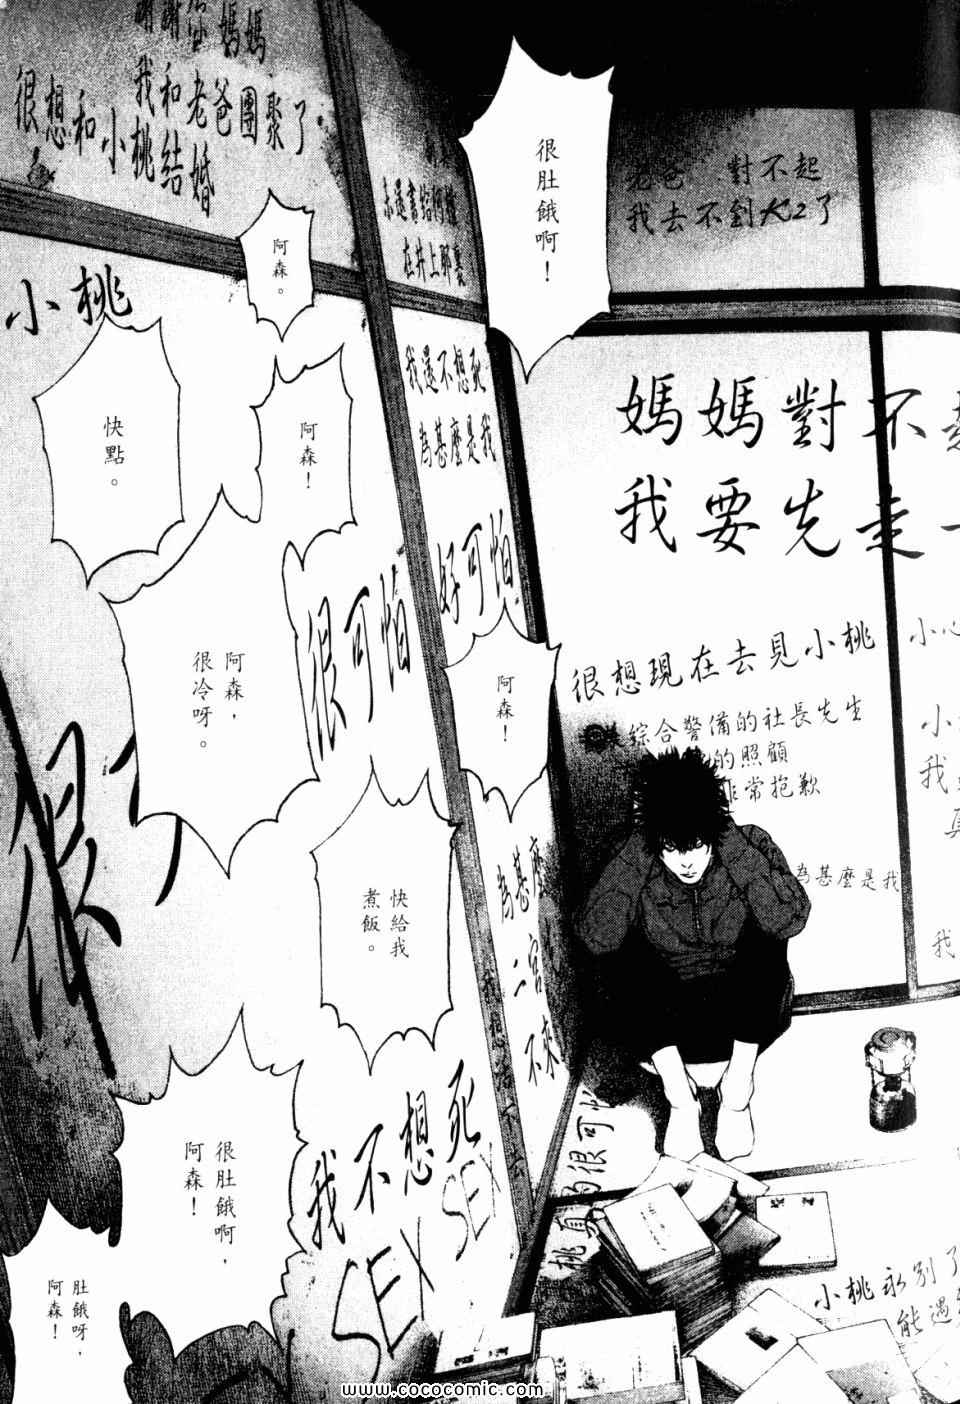 很肚餓啊！
老爸 對不起
我去不到K2了
媽媽對不
我要先走一
很想現在去見小桃
綜合警備的社長先生
的照顧
非常抱歉
為甚麼是我
小心
小
我
真
我
阿森。
阿森！
快點。
阿森，
很冷呀。
阿森！
快給我
煮飯。
很肚餓啊，
阿森！
肚餓呀，
阿森！
媽媽
我和老爸團聚了
很想和小桃結婚
小桃
在井上那裏
我還不想死
為甚麼是我
好可怕
很可怕
很可
為甚麼
二宮
不來
我不想死
SEX SEX
很可怕
小桃永別了
能遇
www.cococomic.com